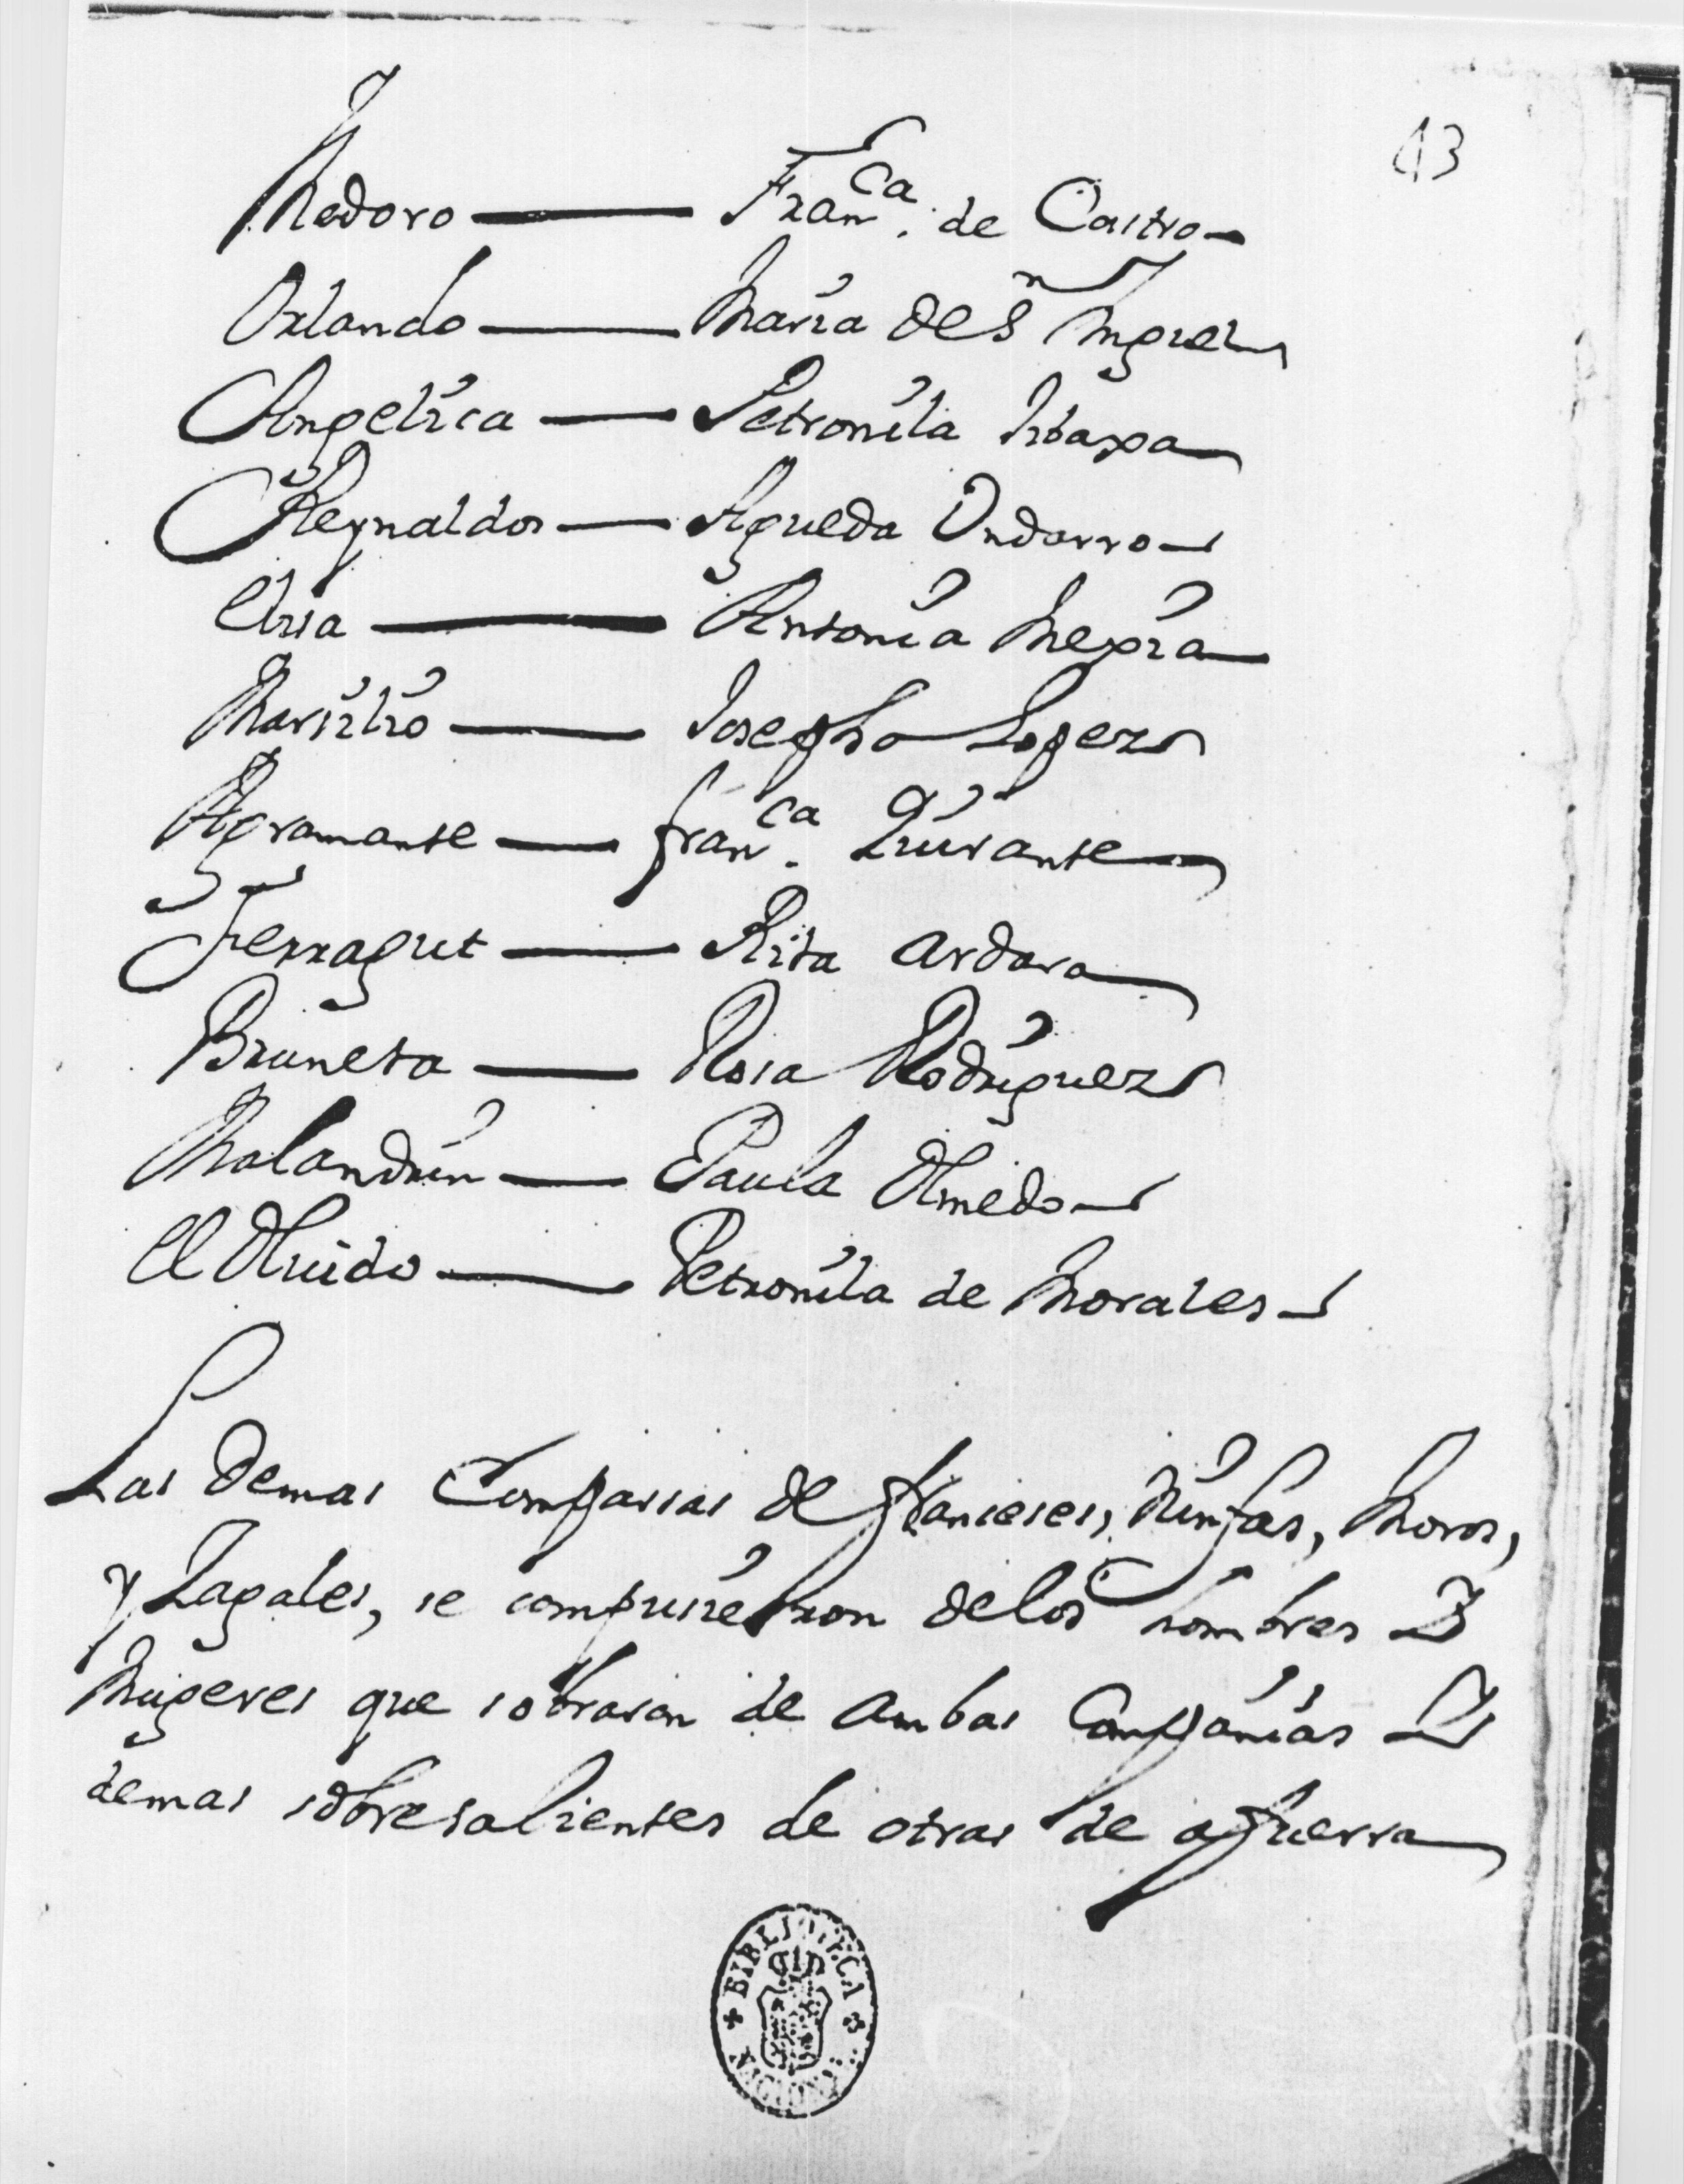 43
Medoro — Fran.ca de Castro
Orlando — Maria de S.n Miguel
Angelica — Petronila Jibaxa
Reynaldos — Agueda Ondarro
Elisa — Antonia Mexia
Marsilio — Josepha Lopez
Agramante — fran.ca Quirante
Ferragut — Rita ardara
Bruneta — Rosa Rodriguez
Malandrin — Paula Olmedo
El Olvido — Petronila de Morales
Las demas Comparsas de franceses, Ninfas, Moros,
y Zagales, se compusieron de los hombres y
Mugeres que sobraron de ambas Compañias y
demas sobresalientes de otras de afuera
BIBLIOTECA NACIONAL